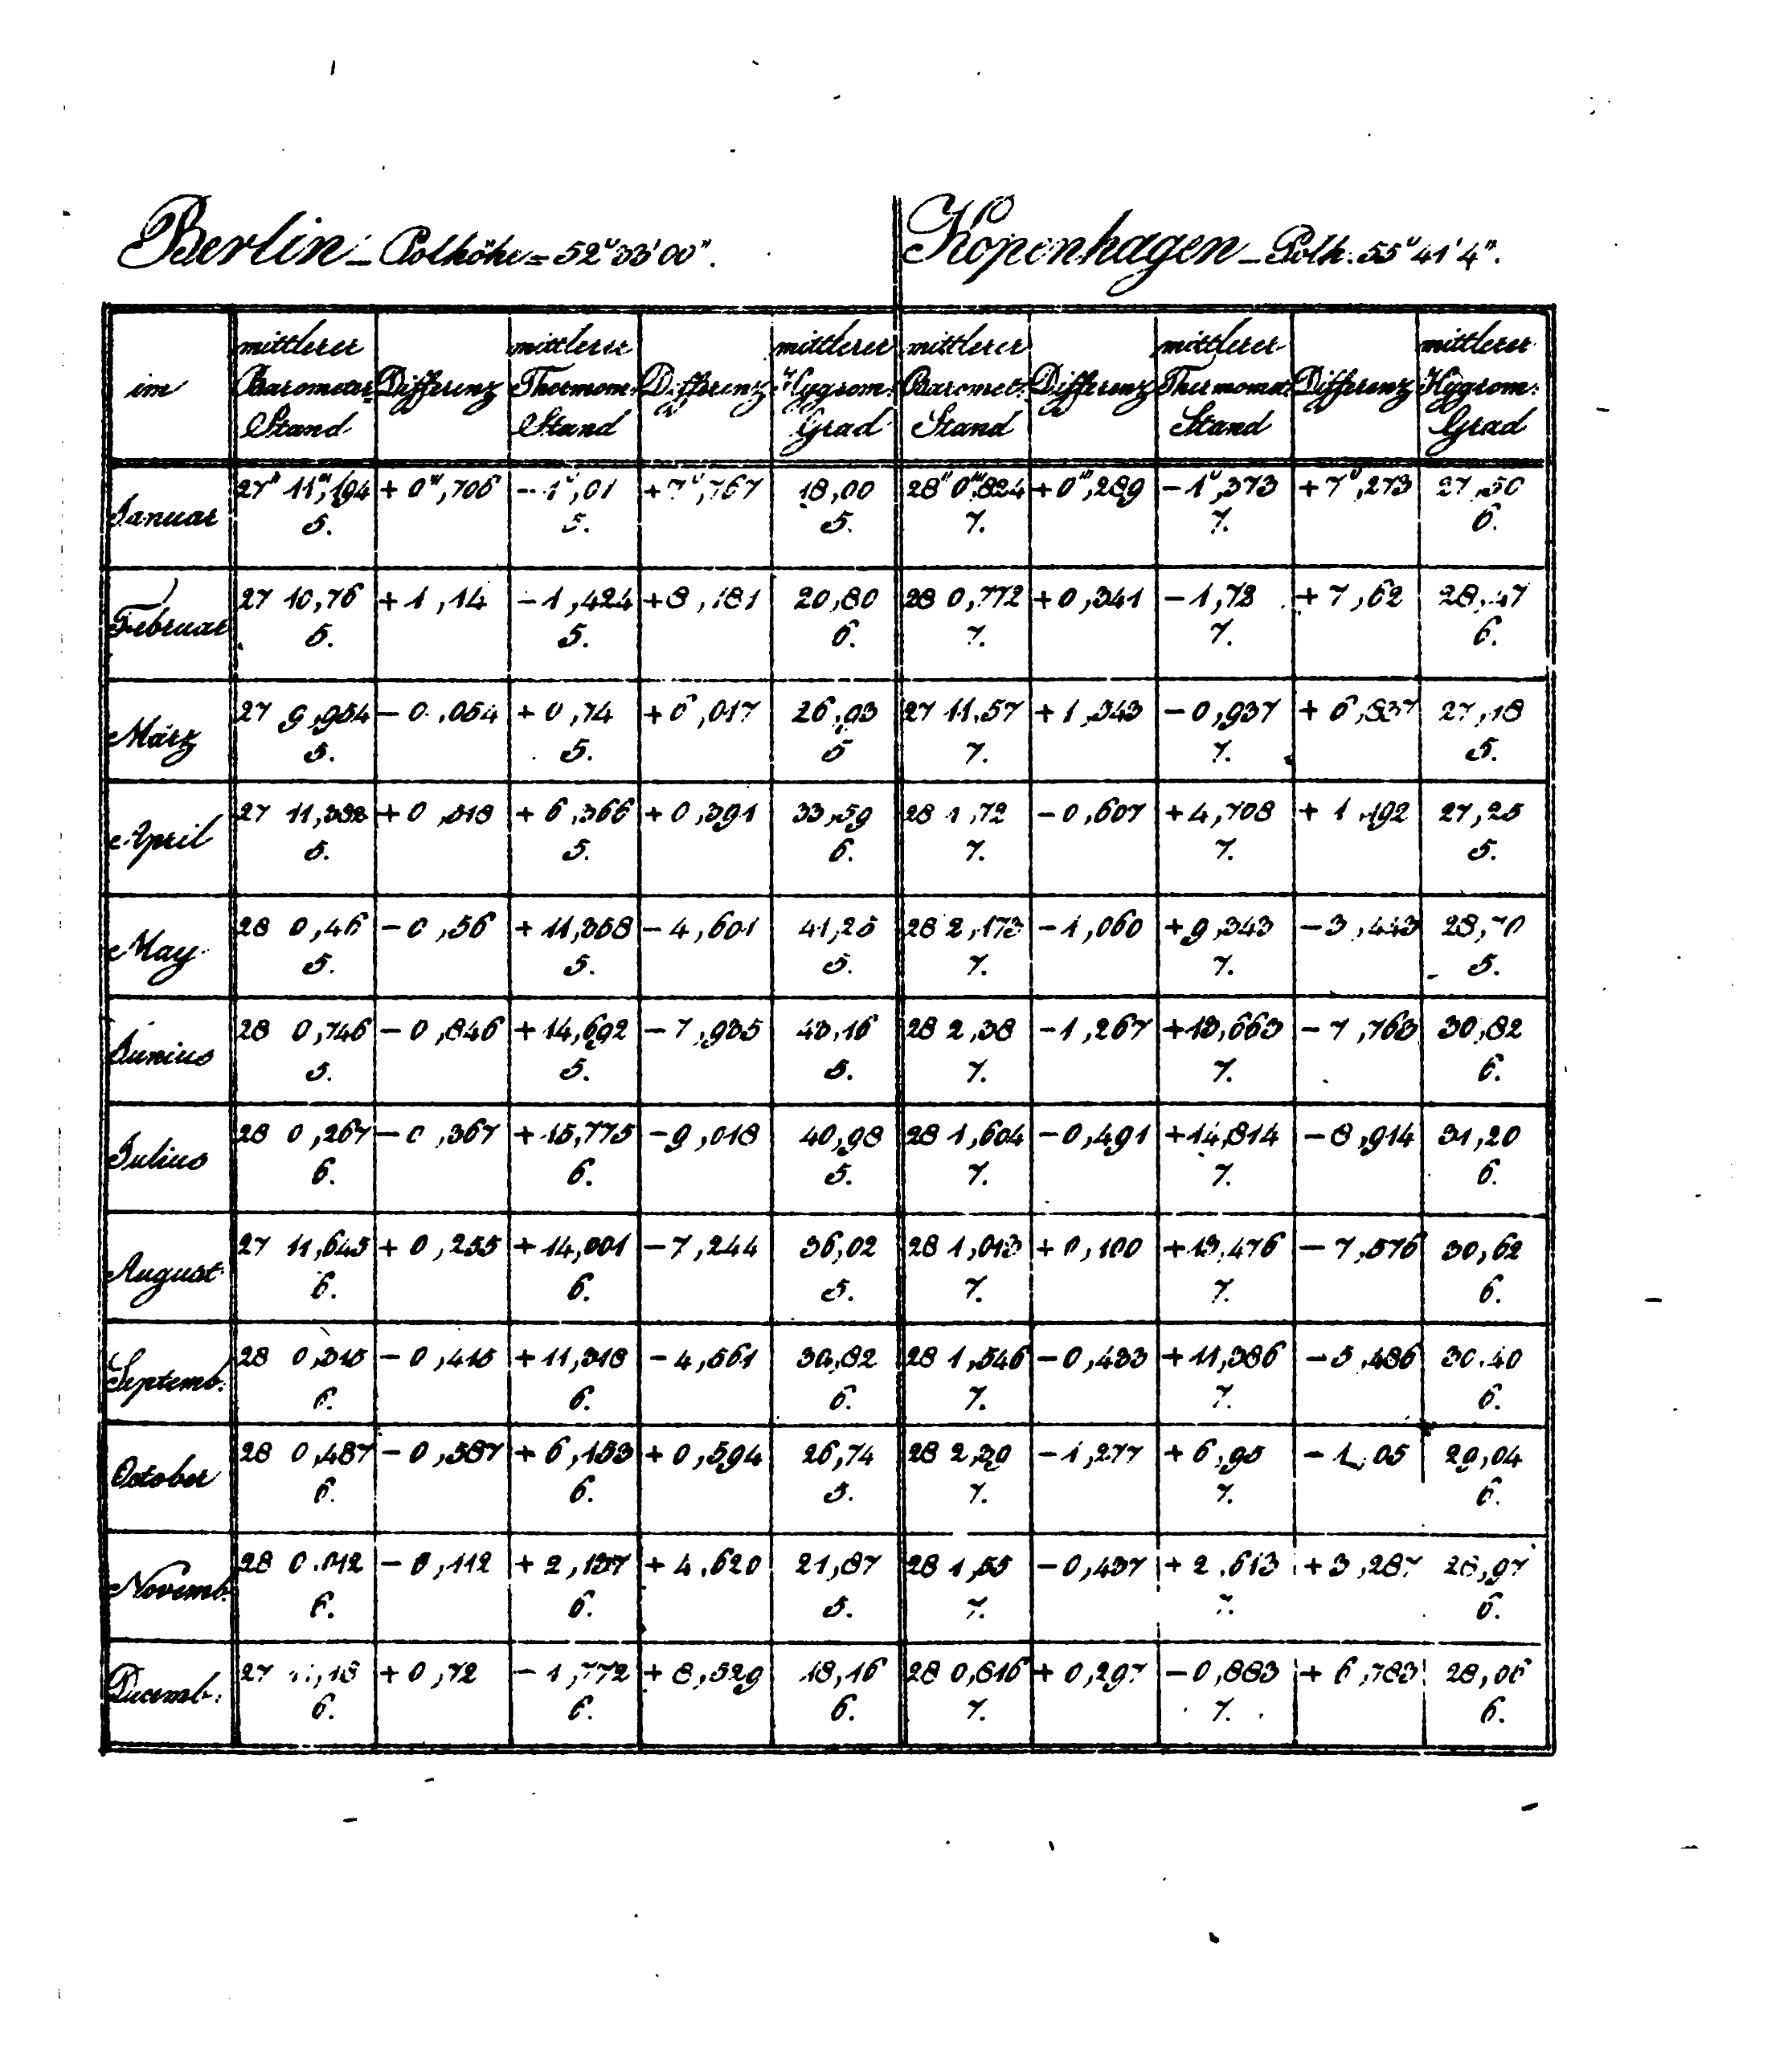 Berlin – Polhöhe = 52° 33' 00". Kopenhagen – Polh. 55° 41' 4".
im mittlerer Barometer- Stand Differenz mittlerer Thermom. Stand Differenz mittlerer Hygrom. Grad mittlerer Baromet. Stand Differenz mittlerer Thermomet. Stand Differenz mittlerer Hygrom. Grad
Januar 27" 11"',194 + 0"',706 – 1°,01 + 7°,767 18,00 28" 0"',824 + 0"',289 – 1°,373 + 7°,273 27,50
5. 5. 5. 7. 7. 6.
Februar 27 10,76 + 1,14 – 1,424 + 8,181 20,80 28 0,772 + 0,341 – 1,72 + 7,62 28,47
5. 5. 6. 7. 7. 6.
März 27 9,954 – 0,054 + 0,74 + 6,017 26,93 27 11,57 + 1,343 – 0,937 + 6,837 27,18
5. 5. 5 7. 7. 5.
April 27 11,382 + 0,518 + 6,366 + 0,391 33,59 28 1,72 – 0,607 + 4,708 + 1,192 27,25
5. 5. 6. 7. 7. 5.
May 28 0,46 – 0,56 + 11,358 – 4,601 41,25 28 2,173 – 1,060 + 9,343 – 3,443
5. 5. 5. 7. 7. 5.
Junius 28 0,746 – 0,846 + 14,692 – 7,935 43,16 28 2,38 – 1,267 + 13,663 – 7,763 30,82
5. 5. 5. 7. 7. 6.
Julius 28 0,267 – 0,367 + 15,775 – 9,018 40,98 28 1,604 – 0,491 + 14,814 – 8,914 31,20
6. 6. 5. 7. 7. 6.
August 27 11,645 + 0,255 + 14,001 – 7,244 36,02 28 1,013 + 0,100 + 13,476 – 7,576 30,62
6. 6. 5. 7. 7. 6.
Septemb. 28 0,315 – 0,415 + 11,318 – 4,561 30,82 28 1,546 – 0,433 + 11,386 – 5,486 30,40
6. 6. 6. 7. 7. 6.
October 28 0,487 – 0,587 + 6,153 + 0,594 26,74 28 2,39 – 1,277 + 6,95 – 1,05 29,04
6. 6. 5. 7. 7. 6.
Novemb. 28 0,012 – 0,112 + 2,137 + 4,620 21,87 28 1,55 – 0,437 + 2,613 + 3,287 28,97
6. 6. 5. 7. 7. 6.
Decemb. 27 11,18 + 0,72 – 1,772 + 8,529 18,16 28 0,816 + 0,297 – 0,883 + 6,783 28,06
6. 6. 6. 7. 7. 6.